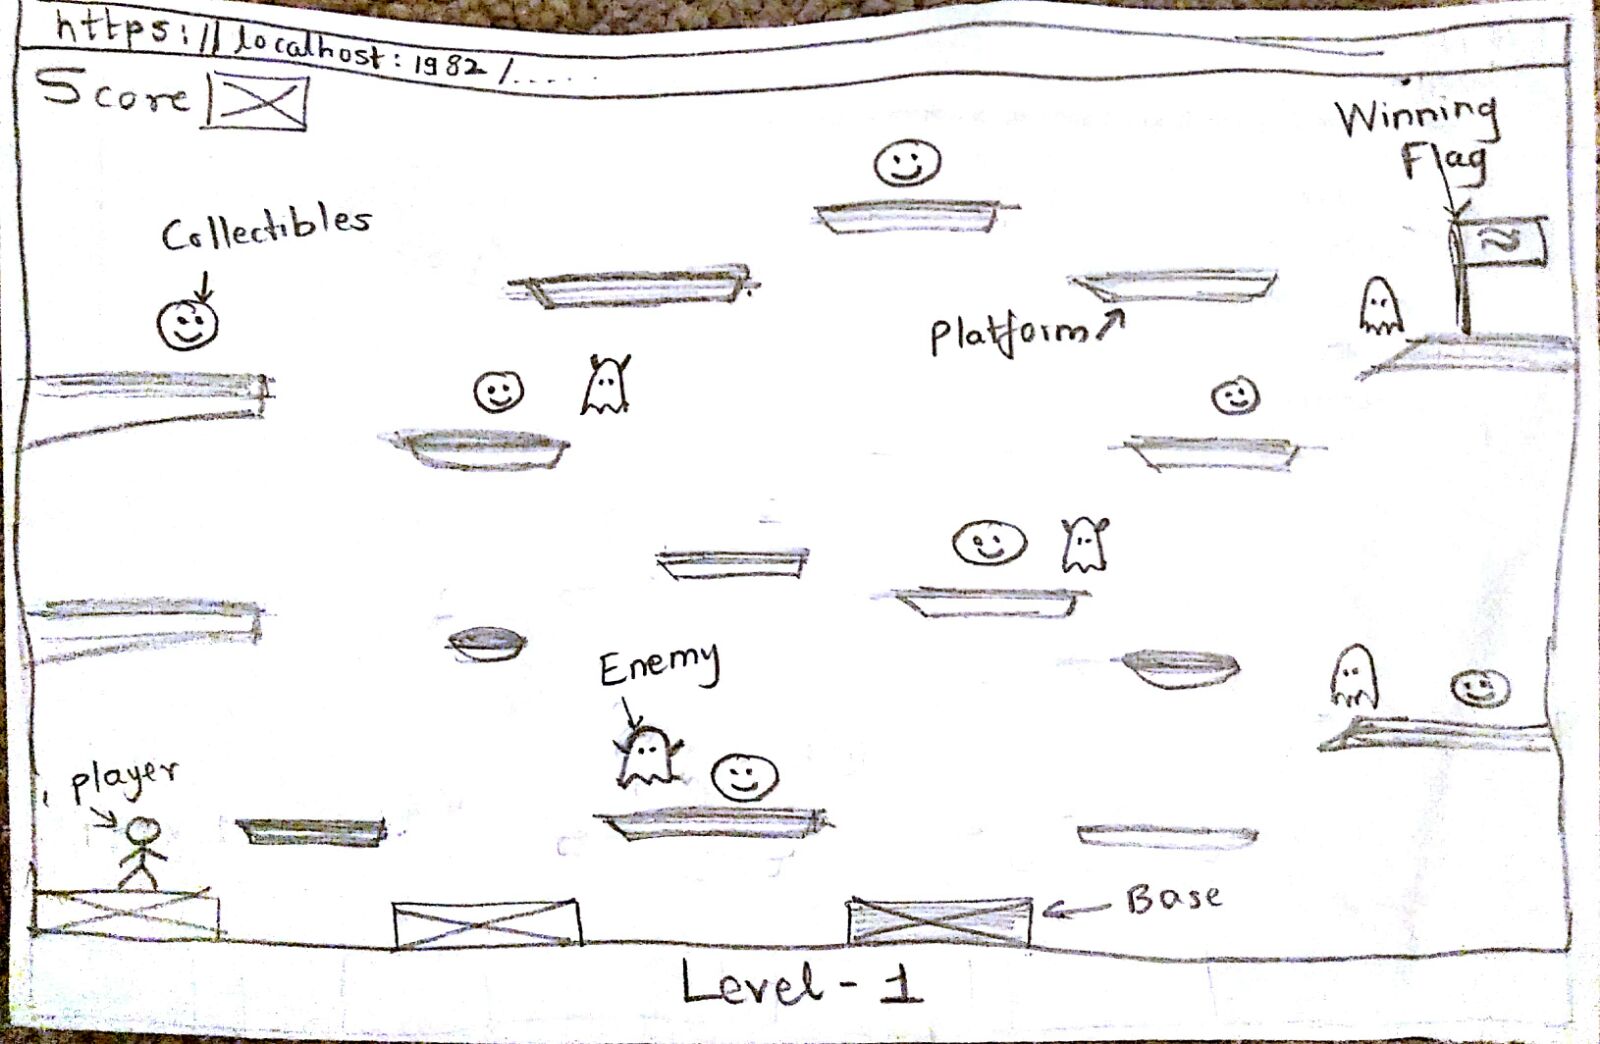 https://localhost:1982/.....
Score
Winning
Flag
Collectibles
Platform
Enemy
player
Base
Level - 1